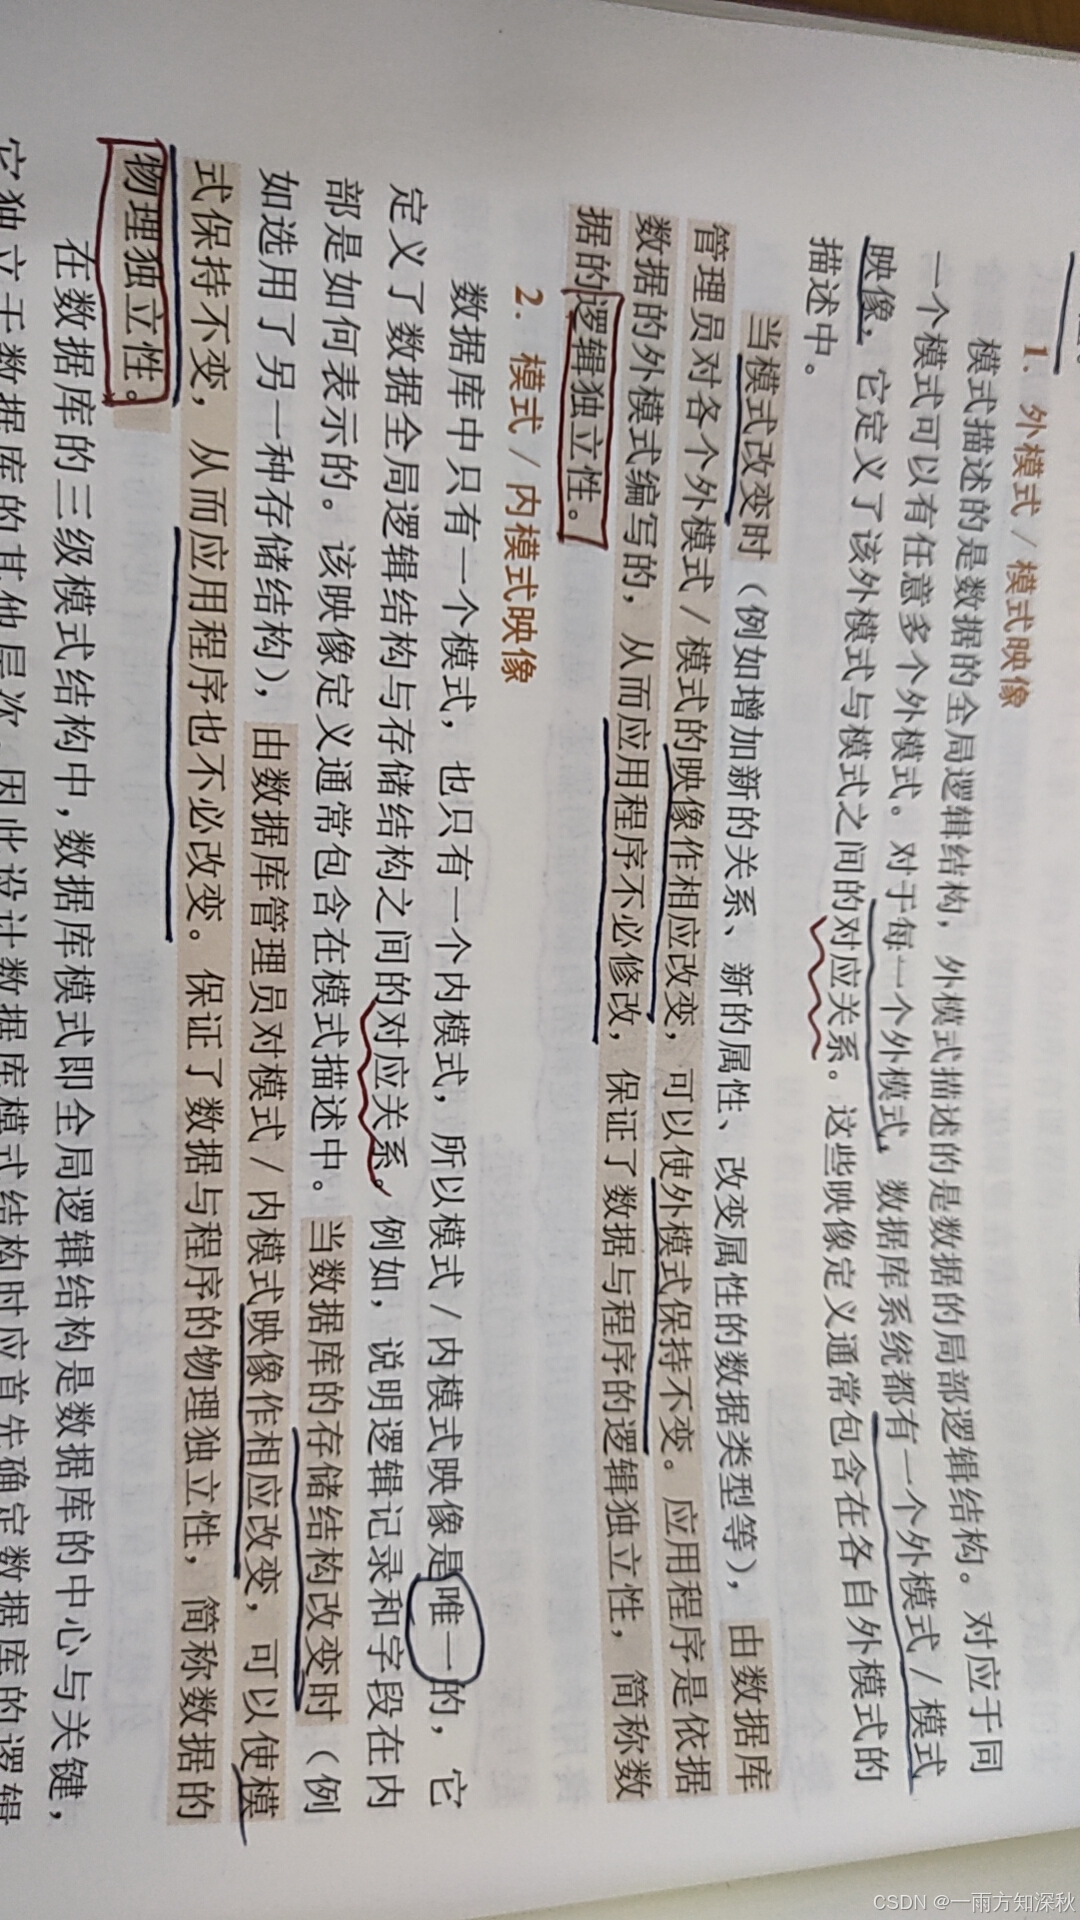 1. 外模式/模式映像
模式描述的是数据的全局逻辑结构，外模式描述的是数据的局部逻辑结构。对应于同
一个模式可以有任意多个外模式。对于每一个外模式，数据库系统都有一个外模式/模式
映像，它定义了该外模式与模式之间的对应关系。这些映像定义通常包含在各自外模式的
描述中。
当模式改变时（例如增加新的关系、新的属性、改变属性的数据类型等），由数据库
管理员对各个外模式/模式的映像作相应改变，可以使外模式保持不变。应用程序是依据
数据的外模式编写的，从而应用程序不必修改，保证了数据与程序的逻辑独立性，简称数
据的逻辑独立性。
2. 模式/内模式映像
数据库中只有一个模式，也只有一个内模式，所以模式/内模式映像是唯一的，它
定义了数据全局逻辑结构与存储结构之间的对应关系。例如，说明逻辑记录和字段在内
部是如何表示的。该映像定义通常包含在模式描述中。当数据库的存储结构改变时（例
如选用了另一种存储结构），由数据库管理员对模式/内模式映像作相应改变，可以使模
式保持不变，从而应用程序也不必改变。保证了数据与程序的物理独立性，简称数据的
物理独立性。
在数据库的三级模式结构中，数据库模式即全局逻辑结构是数据库的中心与关键，
它独立于数据库的其他层次。因此设计数据库模式结构时应首先确定数据库的逻辑
CSDN @一雨方知深秋